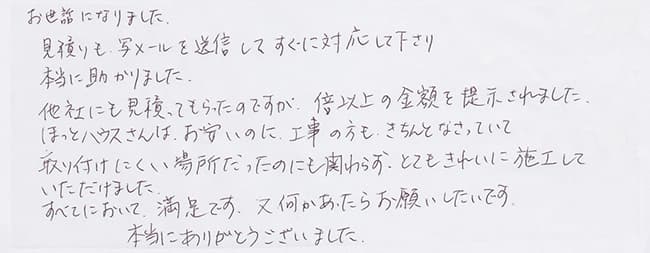 お世話になりました.
見積りも、写メールを送信してすぐに対応して下さり
本当に助かりました.
他社にも見積ってもらったのですが、倍以上の金額を提示されました.
ほっとハウスさんは、お安いのに、工事の方も、きちんとなさっていて
取り付けにくい場所だったのにも関わらず、とてもきれいに施工して
いただけました.
すべてにおいて、満足です、又何かあったらお願いしたいです.
本当にありがとうございました.